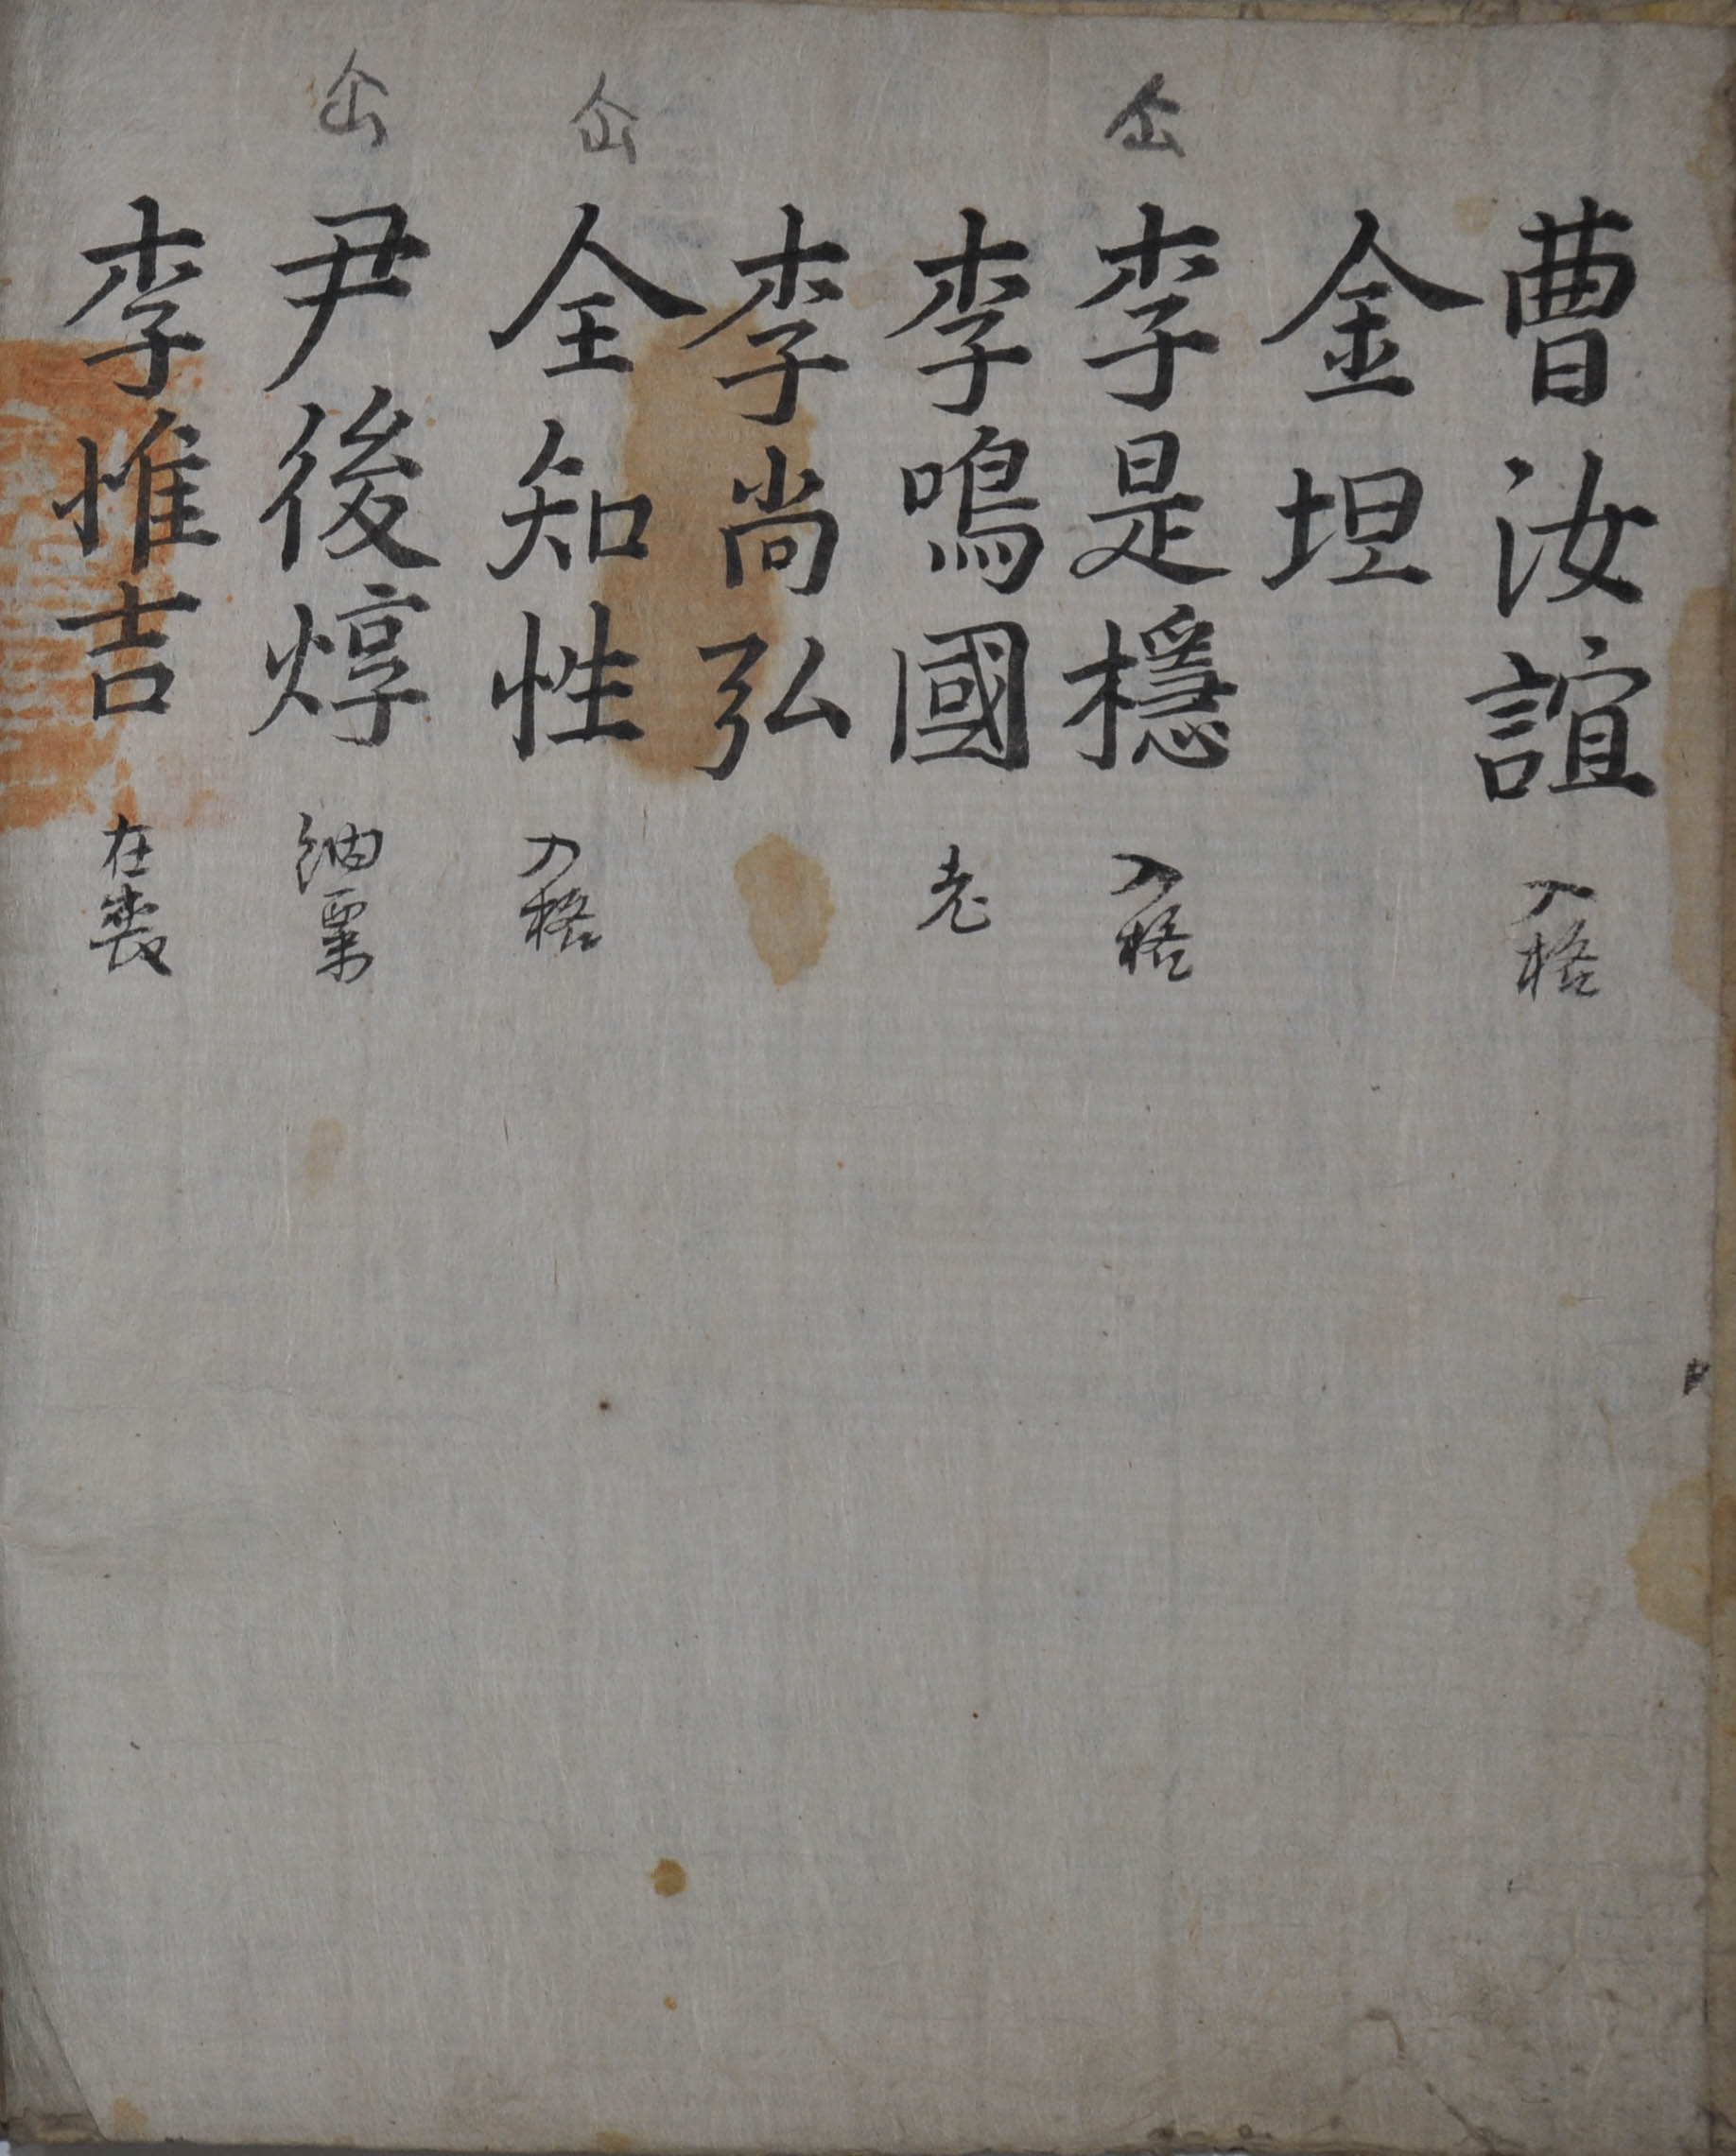 曹汝誼 入格
金坦
仚 李是檼 入格
李鳴國 老
李尚弘
仚 全知性 入格
仚 尹後焞 納粟
李惟吉 在喪